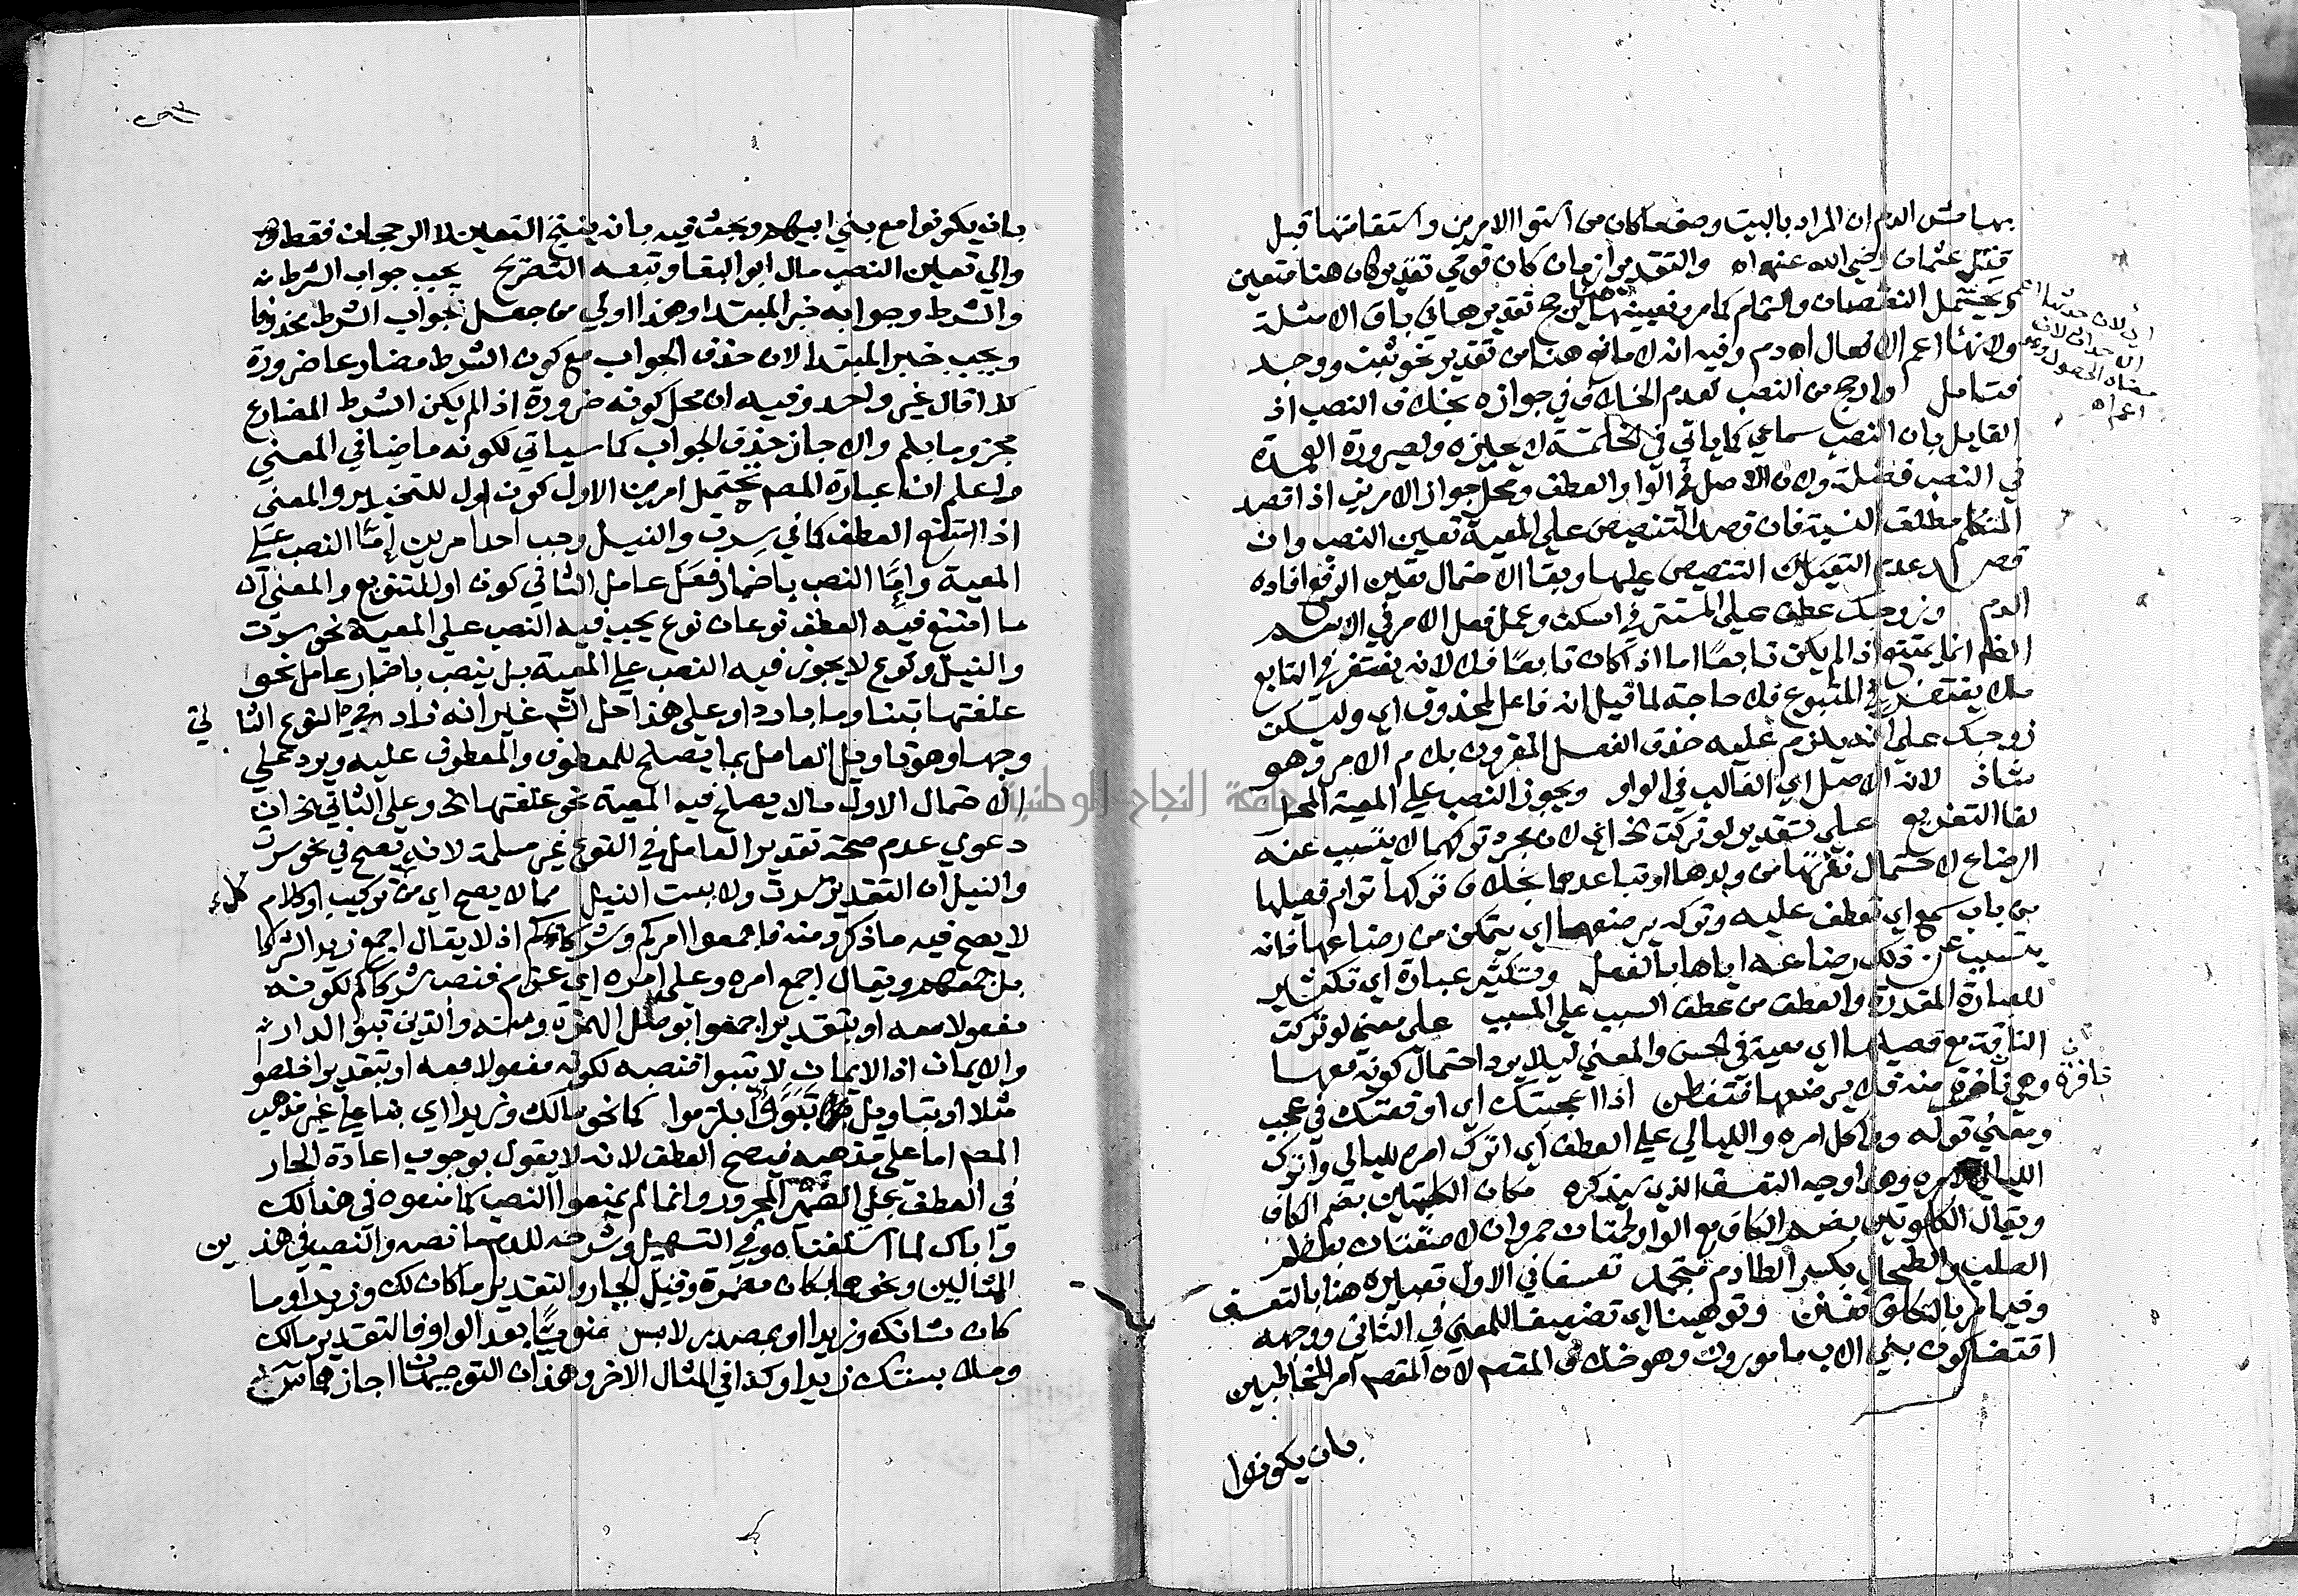 بهامش الدم ان المراد بالبيت وصف ما كان من استوا الامرين واستقامتها قبل
قتل عثمان رضي الله عنه اه والتقدير ازمان كان قومي تقدير كان هنا متعين
ويحتمل النقصان والتمام كما مر وتعيينها هنا يرجح تقديرها في باقي الامثلة
ولانها اعم الافعال اه دم وفيه انه لا مانع هنا من تقدير نحو ثبت ووجد
فتامل او ارجح من النصب لعدم الخلاف في جوازه بخلاف النصب اذ
القايل بان النصب سماعي كما ياتي في الخاتمة لا يجيزه ولصيرورة العمدة
في النصب فضلة ولان الاصل في الواو العطف ومحل جواز الامرين اذا قصد
المتكلم مطلق النسبة فان قصد التنصيص على المعية تعين النصب وان
قصد عدم التنصيص عليها وبقا الاحتمال تعين الرفع افاده
الدم وزوجك عطف على المستتر في اسكن وعمل فعل الامر في الاسم
الظاهر انما يمتنع اذا لم يكن تابعا اما اذا كان تابعا فلا لانه يغتفر في التابع
ما لا يغتفر في المتبوع فلا حاجة لما قيل انه فاعل لمحذوف اي وليسكن
زوجك على انه يلزم عليه حذف الفعل المقرون بلام الامر وهو
شاذ لان الاصل اي الغالب في الواو ويجوز النصب على المعية المحل
لفا التفريع على تقدير لو تركت الخ اي لان مجرد تركهما لا يتسبب عنه
الرضاع لاحتمال نفرتها من ولدها او تباعدهما بخلاف تركها ترام فصيلها
من باب سمع اي تعطف عليه وتركه يرضعها اي يتمكن من رضاعها فانه
يتسبب عن ذلك رضاعه اياها بالفعل وتكثير عبارة اي تكثير
للعبارة المقدرة والعطف من عطف السبب على المسبب على معنى لو تركت
الناقة مع فصيلها اي معية في الحس والمعنى ليلا يرد احتمال كونه معها
وهي نافرة منه فلا يرضعها فتفطن اذا اعجبتك اي اوقعتك في عجب
ومعنى قوله وواكل امره والليالي على العطف اي اترك امره لليالي واترك
الليالي لامره وهذا وجه التعسف الذي سيذكره مكان الكليتين بضم الكاف
ويقال الكلوتين بضم الكاف مع الواو لحمتان حمراوان لاصقتان بعظم
الصلب والطحال بكسر الطا دم تعسفا في الاول تعبيره هنا بالتعسف
وفيما مر بالتكلف تفنن وتوهينا اي تضعيفا للمعنى في الثاني ووجهه
اقتضا كون بني الاب مامورين وهو خلاف المقصم لان المقصم امر المخاطبين
بان يكونوا
اي لان حدثها اعم
الاحداث لان
معناه الحصول وهو
اعم اه
نافرة
بان يكونوا مع بني ابيهم وبحث فيه بانه ينتج التعين لا الرجحان فقط
والي تعين النصب مال ابو البقا وتبعه التصريح يجب جواب الشرط
والشرط وجوابه خبر المبتدا وهذا اولى من جعل جواب الشرط محذوفا
ويجب خبر المبتدا لان حذف الجواب مع كون الشرط مضارعا ضرورة
كذا قال غير واحد وفيه ان محل كونه ضرورة اذا لم يكن الشرط المضارع
مجزوما بلم والا جاز حذف الجواب كما سياتي لكونه ماضيا في المعنى
واعلم ان عبارة المصم تحتمل امرين الاول كون او للتخيير والمعنى
اذا امتنع العطف كما في سرت والنيل وجب احد امرين اما النصب على
المعية واما النصب باضمار فعل عامل الثاني كون او للتنويع والمعنى ان
ما امتنع فيه العطف نوعان نوع يجب فيه النصب على المعية نحو سرت
والنيل ونوع لا يجوز فيه النصب على المعية بل ينصب باضمار عامل نحو
علفتها تبنا وما باردا وعلى هذا حل الشم غير انه زاد في النوع الثاني
وجها وهو تاويل العامل بما يصلح للمعطوف والمعطوف عليه ويرد على
الاحتمال الاول ما لا يصلح فيه المعية نحو علفتها الخ وعلى الثاني نحو ان
دعوى عدم صحة تقدير العامل في النوع غير مسلمة لانه يصح في نحو سرت
والنيل ان التقدير سرت ولابست النيل مما لا يصح اي من تركيب او كلام
لا يصح فيه ما ذكر ومنه فاجمعوا امركم وشركاءكم اذ لا يقال اجمع زيد الشركا
بل جمعهم ويقال اجمع امره وعلى امره اي عزم فنصب شركاكم لكونه
مفعولا معه او بتقدير اجمعوا بوصل الهمزة ومنه والذين تبوا الدار
والايمان اذ الايمان لا يتبوا فنصبه لكونه مفعولا معه او بتقدير اخلصوا
مثلا او بتاويل تبوؤا بلزموا كما نحو مالك وزيدا اي بناء على غير مذهب
المصم اما على مذهبه فيصح العطف لانه لا يقول بوجوب اعادة الجار
في العطف على الضمير المجرور وانما لم يمنعوا النصب كما منعوه في هذا لك
واباك لما اسلفناه وفي التسهيل وشرحه للدم ما نصه والنصب في هذين
المثالين ونحوهما بكان مضمرة قبل الجار والتقدير ما كان لك وزيدا وما
كان شانك وزيدا او بمصدر لابس منويا بعد الواو فالتقدير مالك
وملابستك زيدا وكذا في المثال الاخر وهذان التوجيهان اجازهما س
جامعة النجاح الوطنية